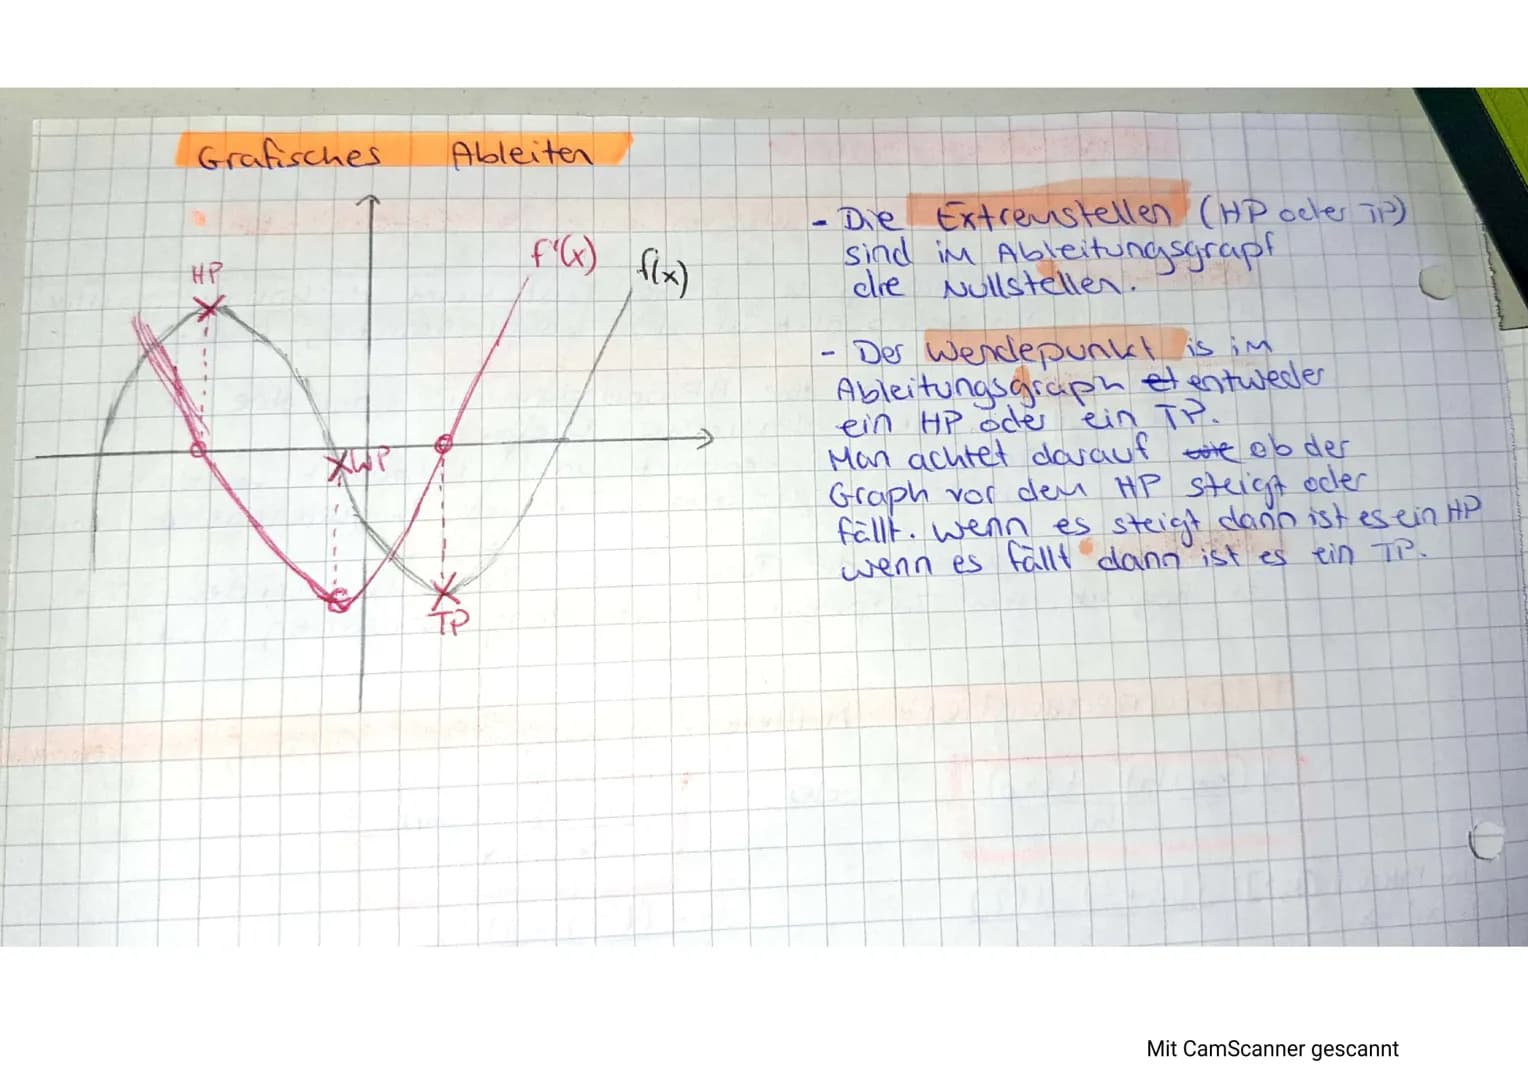 Grafisches Ableiten
f'(x)
f(x)
HP
WP
TP
- Die Extremstellen (HP oder TP)
sind im Ableitungsgrapf
die Nullstellen.
- Der Wendepunkt is im
Ableitungsgraph et entweder
ein HP oder ein TP.
Man achtet darauf ob der
Graph vor dem HP steigt oder
fällt. wenn es steigt dann ist es ein HP
wenn es fällt dann ist es ein TP.
Mit CamScanner gescannt